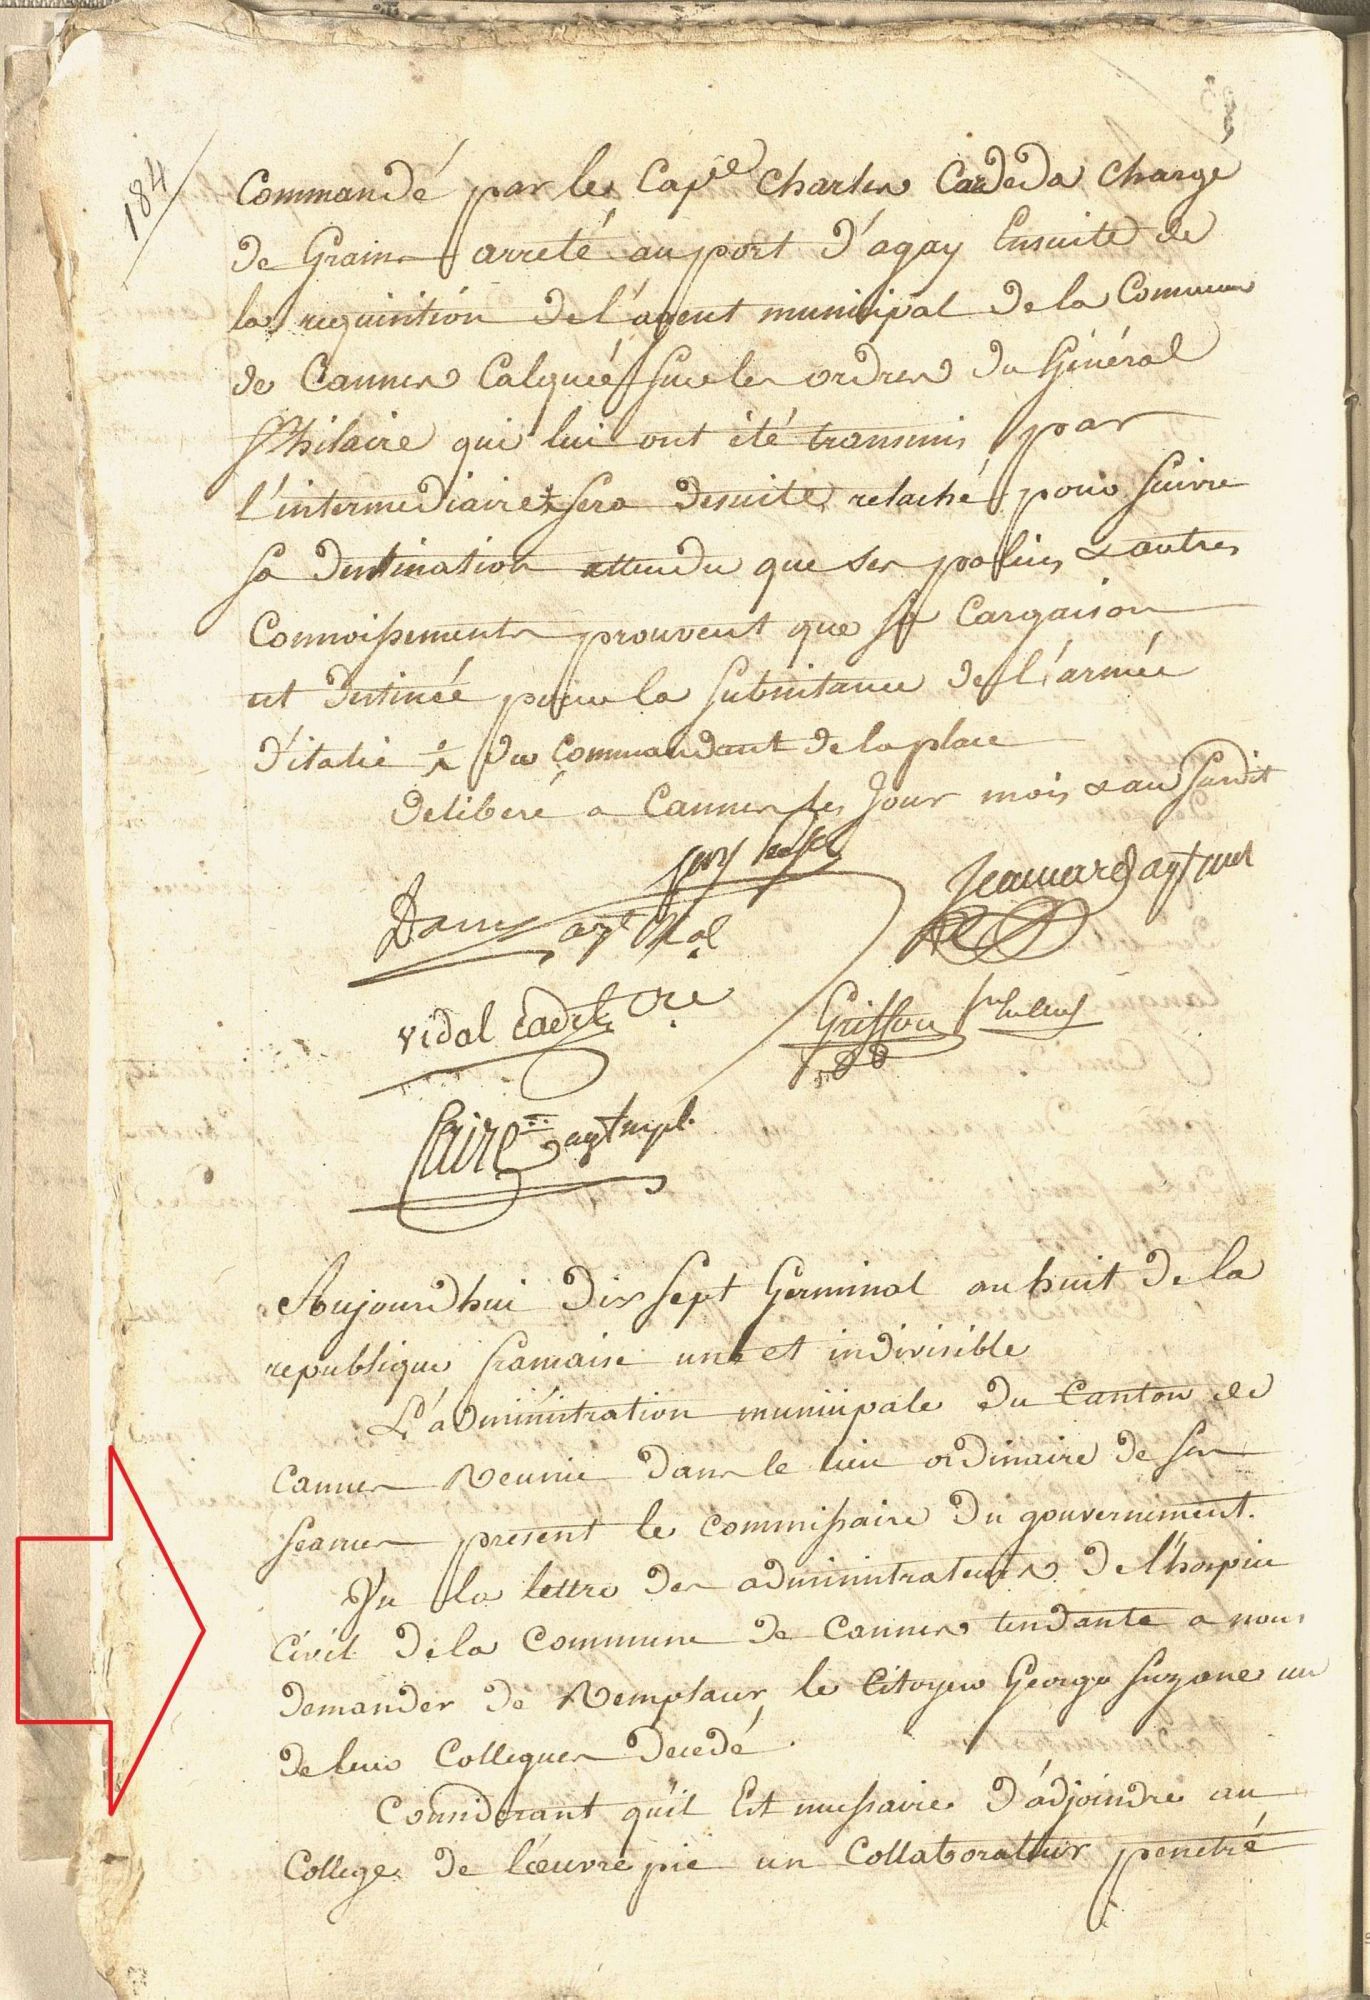 184
Commandé par le Cap.e Charles Cadeda Chargé
de Grains arreté au port d'agay Ensuite de
la requisition de l'agent municipal de la Commune
de Cannes Calquée sur les ordres du Général
St hilaire qui lui ont été transmis par
l'intermediaire + sera desuite relaché pour suivre
sa destination attendu que ses polices & autres
Connoissements prouvent que sa Cargaison
est destinée pour la subsistance de l'armée
d'italie + du Commandant de la place
Deliberé a Cannes les Jour mois & an susdit
Jeaume agt mal
agt mal
vidal Cadet
Griffon
Claire agt mpl.
Aujourdhui dix sept Germinal an huit de la
republique francaise une et indivisible
L'administration municipale du Canton de
Cannes Reunie dans le lieu ordinaire de ses
seances present le commissaire du gouvernement.
Vu la lettre des administrateurs de l'hospice
Civil de la Commune de Cannes tendante a nous
demander de Remplacer le Citoyen George Suzane un
de leurs Collegues decedé.
Considerant qu'il Est necessaire d'adjoindre au
College de l'œuvre pie un Collaborateur penetré